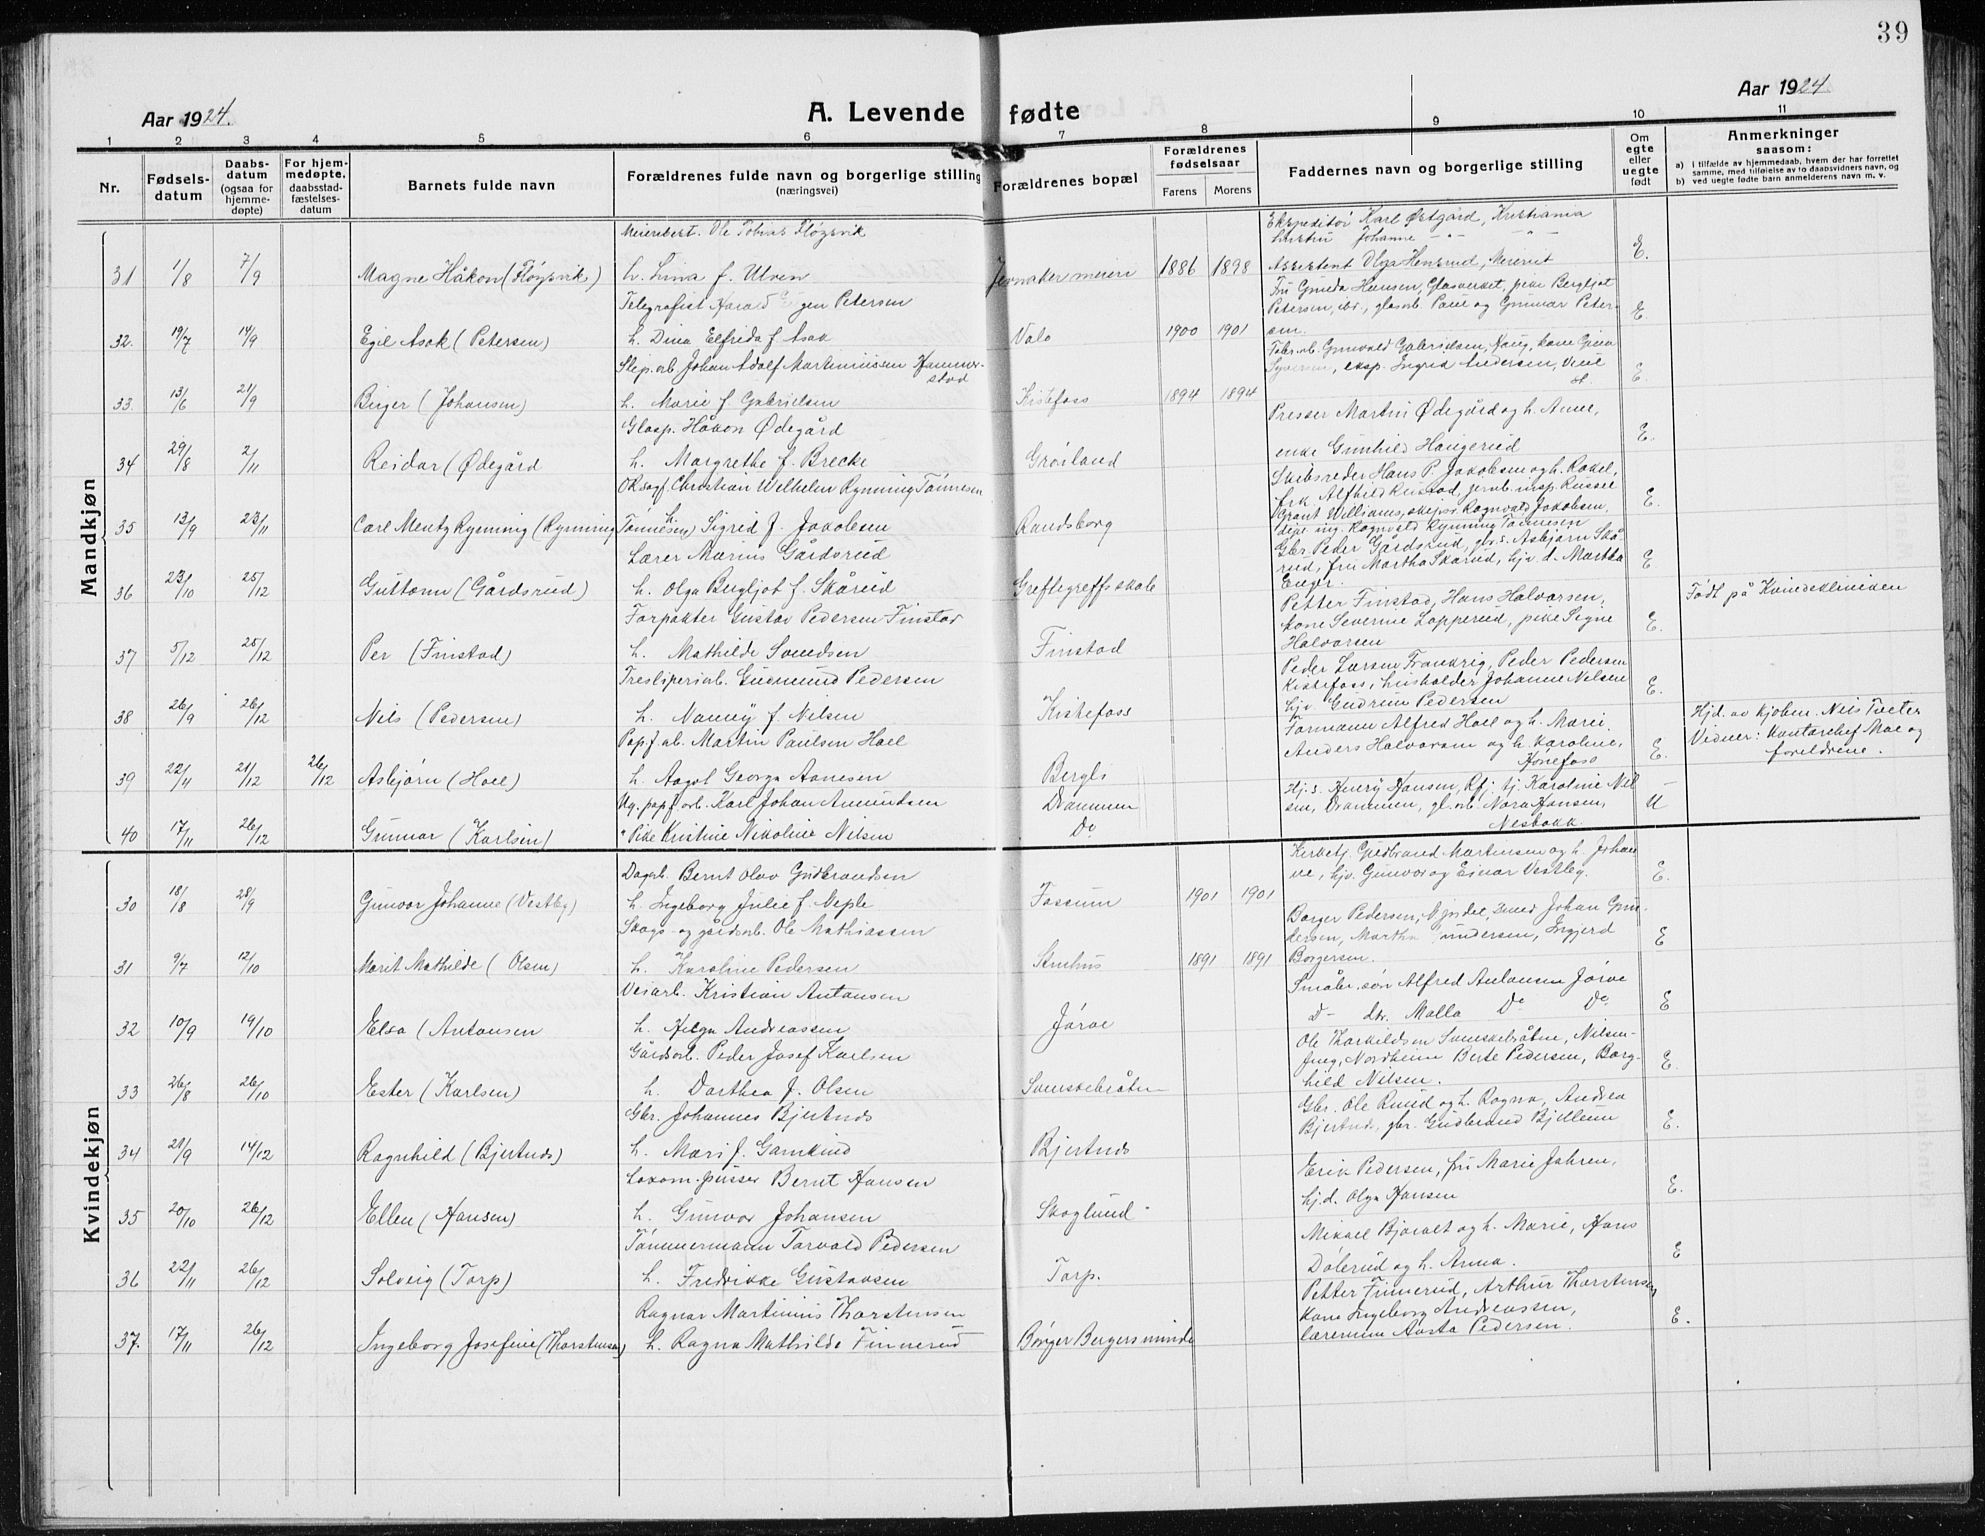 39
Aar 1924.
A. Levende fødte
Aar 1924.
1 2 3 4 5 6 7 8 9 10 11
Nr.
Fødsels-
datum
Daabs-
datum
(ogsaa for
hjemme-
døpte)
For hjem-
medøpte,
daabsstad-
fæstelses-
datum
Barnets fulde navn
Forældrenes fulde navn og borgerlige stilling
(næringsvei)
Forældrenes bopæl
Forældrenes
fødselsaar
Farens Morens
Faddernes navn og borgerlige stilling
Om
egte
eller
uegte
født
Anmerkninger
saasom:
a) i tilfælde av hjemmedaab, hvem der har forrettet
samme, med tilføielse av to daabsvidners navn, og
b) ved uegte født barn anmelderens navn m. v.
Mandkjøn
Meieribest. Ole Tobias Fløgsvik
Ekspeditør Karl Østgård, Kristiania
hustru Johanne -"- -"-
31 1/8 7/9 Magne Håkon (Fløgsvik) h. Lina f. Ulven Jevnaker meieri 1886 1898 Assistent Olga Hensrud, Meieriet E.
Telegrafist Harald Petersen
Fru Gunda Hansen, Glasverket, pike Bergljot
Petersen, ibd., glasarb. Paul og Gunnar Peter-
32. 19/7 14/9 Egil Asak (Petersen) h. Dina Elfrida f. Asak Valo 1900 1901 sen. E
Slip.arb. Johan Adolf Martinuissen Hammer-
stad
Fabr.arb. Gunvald Gabrielsen, Haug, kone Gina
Syversen, eksp. Ingrid Andersen, Viul
33. 13/6 21/9 Birger (Johansen) h. Marie f. Gabrielsen Kistefoss 1894 1894 E
Glasp. Håkon Ødegård
Presser Martin Ødegård og h. Anne,
34 29/8 2/11 Reidar (Ødegård h. Margrethe f. Brecke Grøiland enke Gunhild Haugerud E.
O.R.sagf. Christian Wilhelm Rynning Tønnesen
Skibsreder Hans P. Jakobsen og h. Rakel,
frk Alfhild Rustad, jernb.insp. Russel
Grant Williams, skipsr Ragnvald Jakobsen,
35 13/9 23/11 Carl Mentz Rynning (Rynning Tønnesen) h Sigrid f. Jakobsen Randsborg E.
disp. ing. Ragnvald Rynning Tønnesen
Lærer Marius Gårdsrud
Gbr. Peder Gårdsrud, gbr.s. Asbjørn Skå-
rud, fru Martha Skårud, hjv. d. Martha
36 23/10 25/12 Guttorm (Gårdsrud) h. Olga Bergljot f. Skårud Greftegreffs skole Enger. E Født på Kvindeklinikken
Forpakter Gustav Pedersen Finstad
Petter Finstad, Hans Halvorsen,
kone Severine Lopperud, pike Signe
37 5/12 25/12 Per (Finstad) h. Mathilde Svendsen Finstad Halvorsen E.
Tresliperiarb. Gudmund Pedersen
Peder Larsen Trankrig, Peder Pedersen
Kistefoss, husholder Johanne Nilsen
38 26/9 26/12 Nils (Pedersen) h. Nanny f. Nilsen Kistefoss hjv Gudrun Pedersen E.
Pap.f.arb. Martin Paulsen Hoel
Formann Alfred Hoel og h. Marie.
Anders Halvorsen og h. Karoline,
Hønefoss
39 22/11 21/12 26/12 Asbjørn (Hoel) h. Aagot Georga Aanesen Bergli E. Hjd. av kjøbm. Nils Tveter
Vidner: Kontorchef Moe og
foreldrene.
Ug. pap.f.arb. Karl Johan Amundsen Drammen
Hj.s. Henry Hansen, Rfj. tj. Karoline Nil-
sen, Drammen, gl.arb Nora Hansen,
Nesbakk.
40 17/11 26/12 Gunnar (Karlsen) " Pike Kristine Nikoline Nilsen Do U -
Kvindekjøn
Dagarb. Bernt Olav Gudbrandsen
Kirketj. Gudbrand Martinsen og h. Johan
ne, hjv. Gunvor og Einar Vestby.
30 18/8 28/9 Gunvor Johanne (Vestby) h. Ingeborg Julie f. Neple Fossum 1901 1901 E.
Skogs- og gårdsarb. Ole Mathiassen
Borger Pedersen, Mjørdel, Johan Gun-
dersen, Martha Gundersen, Ingjerd
31 9/7 12/10 Marit Mathilde (Olsen) h. Karoline Pedersen Stenhus 1891 1891 Borgersen. E
Veiarb. Kristian Antonsen
Småbr.søn Alfred Antonsen Jørve
32 10/9 19/10 Elsa (Antonsen h. Helga Andreassen Jørve D- dtr. Malla Do Do E
Gårdsarb. Peder Josef Karlsen
Ole Thorkildsen Svenskebråten, Nilsen-
Nordheim Berte Pedersen, Borg-
33 26/8 26/10 Ester (Karlsen) h. Dorthea f. Olsen Svenskebråten hild Nilsen. E.
Gbr. Johannes Bjertnds
Gbr. Ole Ruud og h. Ragna, Andrea
Bjertnds, gbr. Gudbrand Bjellum
34 21/9 14/12 Ragnhild (Bjertnds) h. Mari f. Gamkind Bjertnds E.
Lokom.pusser Bernt Hansen
Erik Pedersen, fru Marie Jahren,
35 20/10 26/12 Ellen (Hansen) h. Gunvor Johansen Skoglund hj.d. Olga Hansen E.
Tømmermann Torvald Pedersen
Mikael Bjøralt og h. Marie, Hans
36 22/11 26/12 Solveig (Torp) h. Fredrikke Gustavsen Torp. Dølerud og h. Anna. E
Ragnar Martinius Thorstensen
Petter Finnerud, Arthur Thorstensen
kone Ingeborg Andreassen,
37. 17/11 26/12 Ingeborg Josefine (Thorstensen) h. Ragna Mathilde Finnerud Børger Bergersminde lærerinne Aasta Pedersen. E.